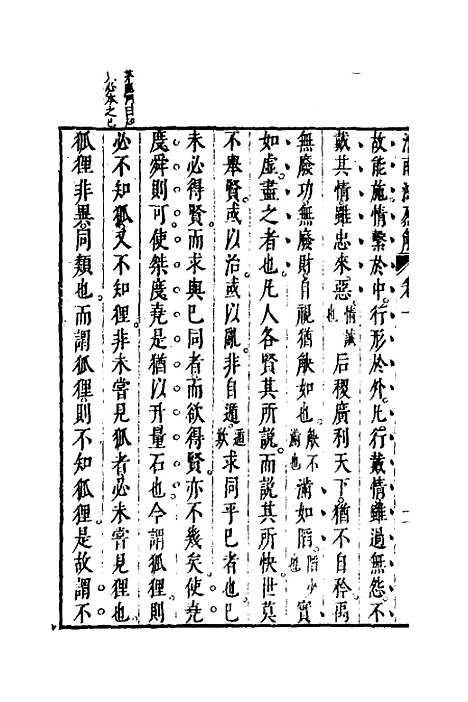 故能施情繫於中行形於外凡行戴情雖過無怨不
戴其情雖忠來惡情誠也后稷廣利天下猶不自矜禹
無廢功無廢財自視猶觖如也觖不滿也滿如陷陷少也實
如虛盡之者也凡人各賢其所說而說其所快世莫
不舉賢或以治或以亂非自遁遁欺求同乎己者也己
未必得賢而求與己同者而欲得賢亦不幾矣使堯
度舜則可使桀度堯是猶以升量石也今謂狐狸則
必不知狐又不知狸非未嘗見狐者必未嘗見狸也
狐狸非異同類也而謂狐狸則不知狐狸是故謂不
茅鹿門曰